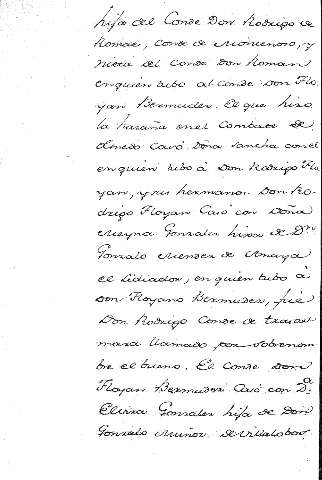 hija del Conde Don Rodrigo de
Romae, Conde de Monterroso, y
Nieta del Conde Don Roman
en quien tubo al Conde Don Flo,
yan Bermudez. El que hizo
la hazaña en el Combate de
Olmedo Casó Doña Sancha con el
en quien tubo á Don Rodrigo Flo,
yan, y sus hermano. Don Ro,
drigo Floyan Casó con Doña
Mayna Gonzalez hixa de Dn
Gonzalo Mendez de Amaya
el Lidiador, en quien tubo á
Don Floyano Bermudez, fue
Don Rodrigo Conde de trasta,
mara llamado por Sobrenom,
bre el bueno. El Conde Don
Floyan Bermudez Casó con Da
Elvira Gonzalez hija de Don
Gonzalo Muñoz de Villalobos